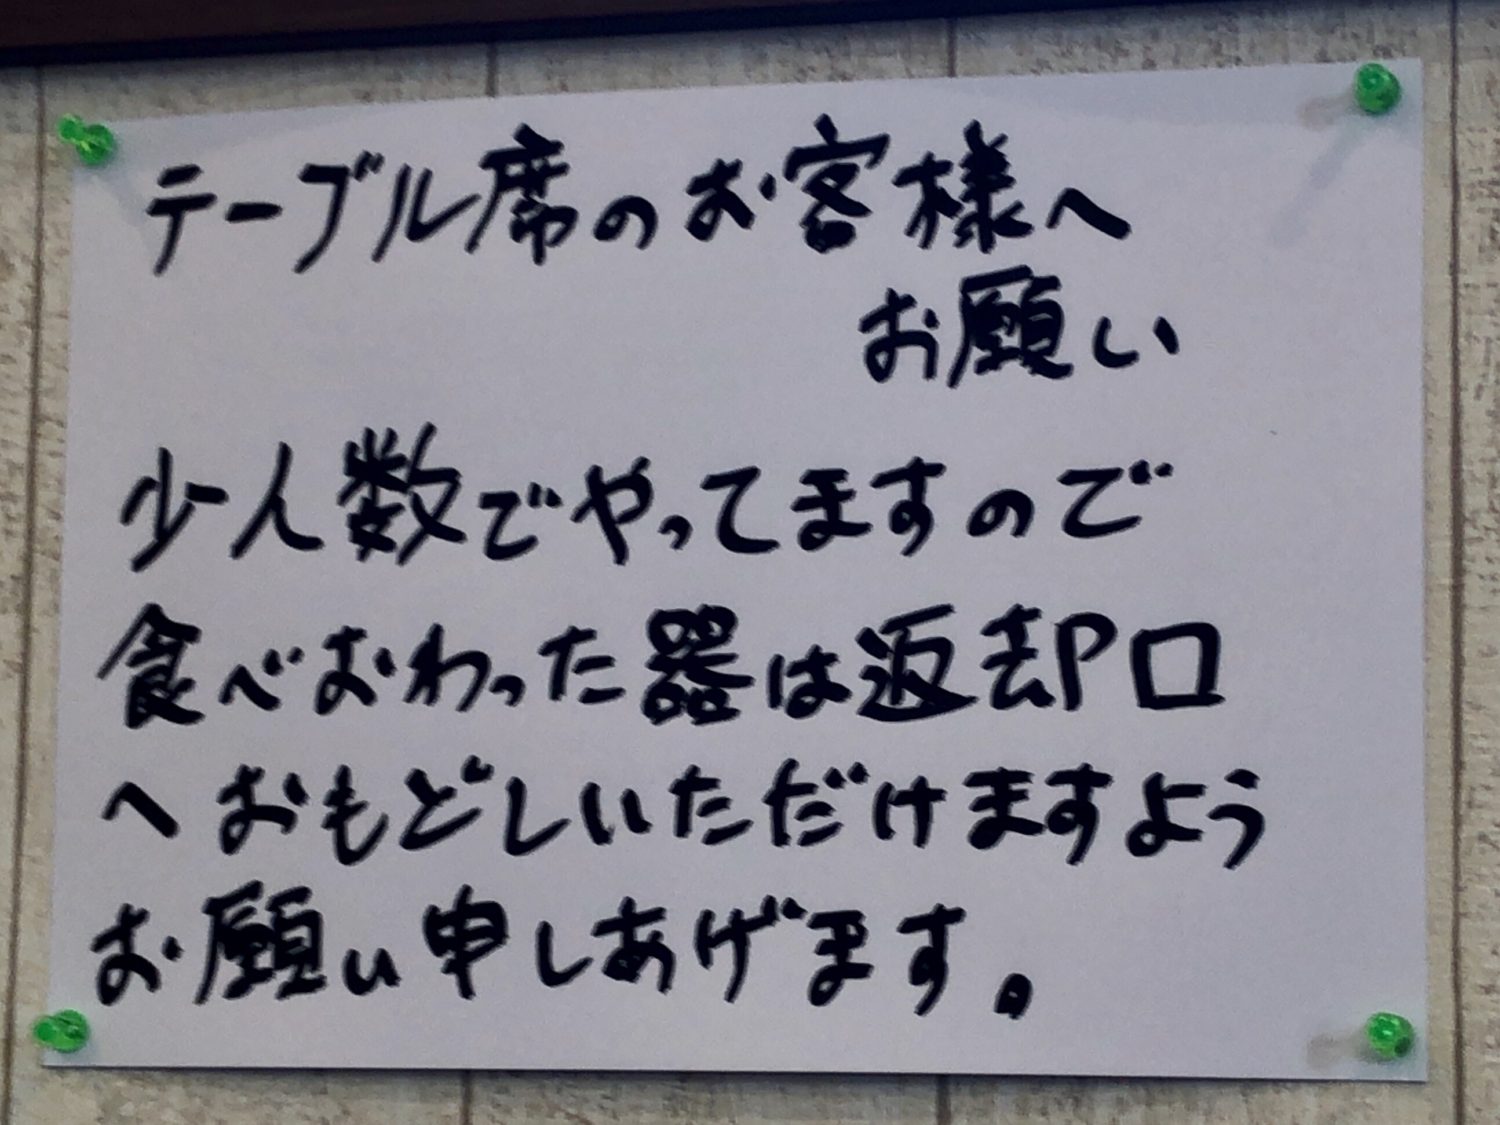 テーブル席のお客様へ
お願い
少人数でやってますので
食べおわった器は返却口
へおもどしいただけますよう
お願い申しあげます。